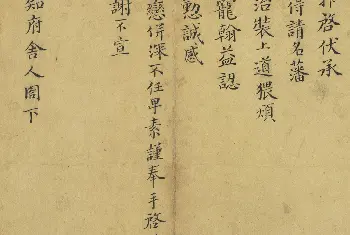 拜啓伏承
得請名藩
治裝上道猥煩
寵翰益認
懃誠感
戀併深不任卑素謹奉手啓
謝不宣
知府舍人閤下